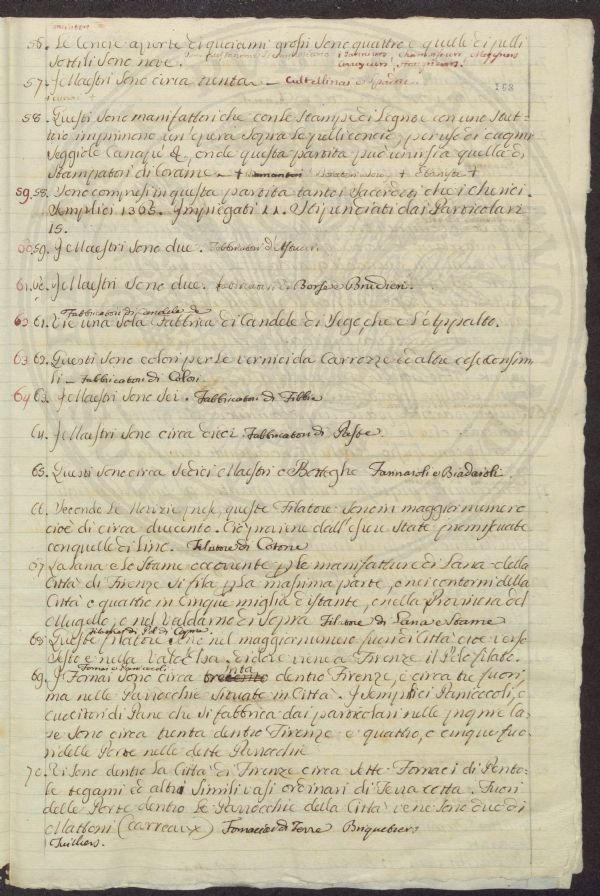 56. Le Concie aperte di quoiami grossi sono quattro e quelle di pelli
sottili sono nove.
57. I Maestri sono circa trenta - Cultellinai e Spadai
168
58. Questi sono manifattori che con le stampe di Legno e con uno strettoio
imprimono un'opera sopra le pelli concie, per uso di cuojini
seggiole Canapè &, onde questa partita può unirsi a quella di
Stampatori di Corame -
59. 58. Sono compresi in questa partita tanto i Sacerdoti che i cherici
semplici 1365. Impiegati 11. Stipendiati dai Particolari
15.
60. 59. I Maestri sono due. Fabbricatori di Astucci.
61. 60. I Maestri sono due. Fabbricatori di Borse e Brudieri.
Fabbricatori di Candele de
62 61. Vi è una sola Fabbrica di Candele di Sego, che è l'Appalto.
63 62. Questi sono colori per le vernici da Carrozze ed altre cose consimili
- Fabbricatori di Colori.
64 63. I Maestri sono sei. Fabbricatori di Fibbie
64. I Maestri sono circa dieci. Fabbricatori di Paste.
65. Questi sono circa sedici Maestri o Botteghe Fannaioli e Biadaioli.
66. Secondo le Notizie prese, queste Filatore sono in maggior numero
cioè di circa duecento. Ciò proviene dall'essere state promiscuate
con quelle di Lino. Filatore di Cotone
67 La Lana e lo Stame occorrente per le manifatture di Lana della
Città di Firenze si fila per la massima parte, o nei contorni della
Città o quattro in cinque miglia distante, o nella Provincia del
Mugello, o nel Valdarno di Sopra Filatore di Lana e Stame
Filatore di Pel di Capra.
68 Queste filatore sono nel maggior numero fuori di Città cioè verso
Sesto e nella Valdelsa, di dove viene a Firenze il Pelo filato.
Fornai e Panicuocoli
69. I Fornai sono circa trenta dentro Firenze, e circa tre fuori,
ma nelle Parrocchie situate in Città. I semplici Panicocoli, o
cuocitori di Pane che si fabbrica dai particolari nelle proprie case
sono circa trenta dentro Firenze e quattro, o cinque fuori
delle Porte nelle dette Parrocchie
70 Vi sono dentro la Città di Firenze circa sette Fornaci di Pentole
tegami ed altri simili vasi ordinari di Terra cotta. Fuori
delle Porte dentro le Parrocchie della Città ve ne sono due di
Mattoni (Carreaux) Fornaciai di Terre Briquetiers
Tuilliers.